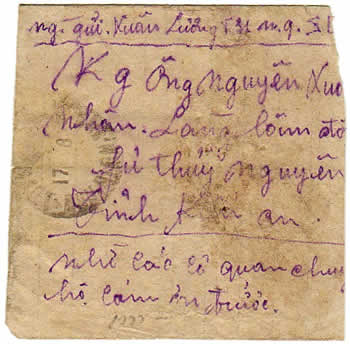 ng. gửi. Xuân Lương
Kg Ông Nguyễn Xuâ
Nhân. Làng lôm đô
Thuỷ Nguyên
Tỉnh Kiến an.
Nhờ các cơ quan chuy
hộ. Cám ơn trước.
17 8